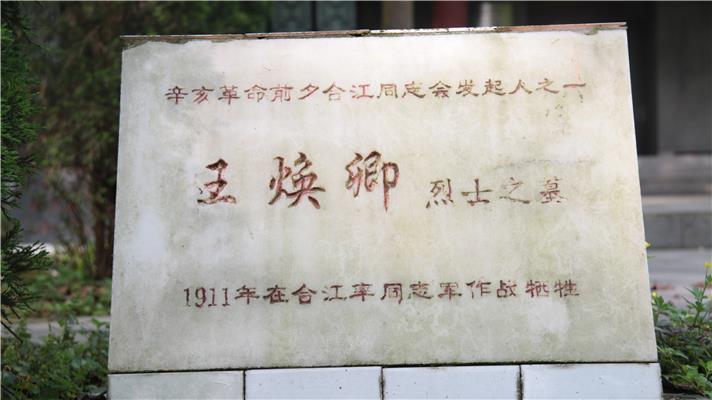 辛亥革命前夕合江同志会发起人之一
王焕卿 烈士之墓
1911年在合江率同志军作战牺牲